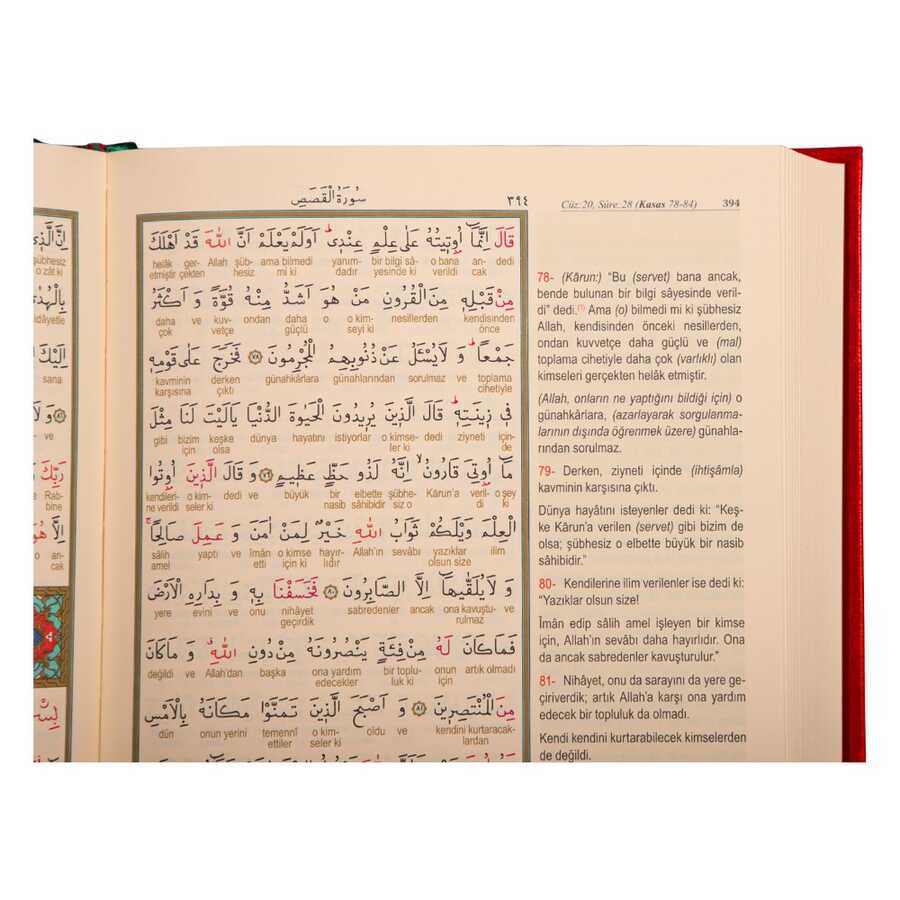 سُورَةُ الْقَصَصِ ٣٩٤
قَالَ اِنَّمَٓا اُو۫ت۪يتُهُ عَلٰى عِلْمٍ عِنْد۪يۜ اَوَلَمْ يَعْلَمْ اَنَّ اللّٰهَ قَدْ اَهْلَكَ
helâk ger- Allah şüb- ama bilmedi yanım- bir bilgi sâ- o bana an- dedi
etmiştir çekten hesiz mi ki dadır yesinde ki verildi cak
مِنْ قَبْلِه۪ مِنَ الْقُرُونِ مَنْ هُوَ اَشَدُّ مِنْهُ قُوَّةً وَ اَكْثَرُ
daha ve kuv- ondan daha o o kim- nesillerden kendisinden
çok vetçe güçlü seyi ki önce
جَمْعًاۜ وَ لَا يُسْـَٔلُ عَنْ ذُنُوبِهِمُ الْمُجْرِمُونَ ﴿٧٨﴾ فَخَرَجَ عَلٰى قَوْمِه۪
kavminin derken günahkârlara günahlarından sorulmaz ve toplama
karşısına çıktı cihetiyle
ف۪ي ز۪ينَتِه۪ۜ قَالَ الَّذ۪ينَ يُر۪يدُونَ الْحَيٰوةَ الدُّنْيَا يَالَيْتَ لَنَا مِثْلَ
gibi bizim keşke dünya hayatını istiyorlar o kimse- dedi ziyneti için-
için olsa ler ki de
مَٓا اُو۫تِيَ قَارُونُۙ اِنَّهُ لَذُو حَظٍّ عَظ۪يمٍ ﴿٧٩﴾ وَ قَالَ الَّذ۪ينَ اُو۫تُوا
kendileri- o kim- dedi ve büyük bir elbette şübhe- Kârun'a veril- o şey
ne verildi seler ki nasib sahibidir siz o di ki
الْعِلْمَ وَيْلَكُمْ ثَوَابُ اللّٰهِ خَيْرٌ لِمَنْ اٰمَنَ وَ عَمِلَ صَالِحًاۚ
sâlih yaptı ve îmân o kimse hayır- Allah'ın sevâbı yazıklar ilim
amel etti için ki lıdır olsun size
وَ لَا يُلَقّٰيهَٓا اِلَّا الصَّابِرُونَ ﴿٨٠﴾ فَخَسَفْنَا بِه۪ وَ بِدَارِهِ الْاَرْضَ
yere evini ve onu nihâyet sabredenler ancak ona kavuştu- ve
geçirdik rulmaz
فَمَا كَانَ لَهُ مِنْ فِئَةٍ يَنْصُرُونَهُ مِنْ دُونِ اللّٰهِۗ وَ مَا كَانَ
değildi ve Allah'dan başka ona yardım bir toplu- onun artık olmadı
edecekler luk ki için
مِنَ الْمُنْتَصِر۪ينَ ﴿٨١﴾ وَ اَصْبَحَ الَّذ۪ينَ تَمَنَّوْا مَكَانَهُ بِالْاَمْسِ
dün onun yerini temennî o kim- oldu ve kendini kurtaracak-
ettiler seler ki lardan
Cüz: 20, Sûre: 28 (Kasas 78-84) 394
78- (Kârun:) “Bu (servet) bana ancak,
bende bulunan bir bilgi sâyesinde veril-
di” dedi.(1) Ama (o) bilmedi mi ki şübhesiz
Allah, kendisinden önceki nesillerden,
ondan kuvvetçe daha güçlü ve (mal)
toplama cihetiyle daha çok (varlıklı) olan
kimseleri gerçekten helâk etmiştir.
(Allah, onların ne yaptığını bildiği için) o
günahkârlara, (azarlayarak sorgulanma-
larının dışında öğrenmek üzere) günahla-
rından sorulmaz.
79- Derken, ziyneti içinde (ihtişâmla)
kavminin karşısına çıktı.
Dünya hayâtını isteyenler dedi ki: “Keş-
ke Kârun'a verilen (servet) gibi bizim de
olsa; şübhesiz o elbette büyük bir nasib
sâhibidir.”
80- Kendilerine ilim verilenler ise dedi ki:
“Yazıklar olsun size!
Îmân edip sâlih amel işleyen bir kimse
için, Allah'ın sevâbı daha hayırlıdır. Ona
da ancak sabredenler kavuşturulur.”
81- Nihâyet, onu da sarayını da yere ge-
çiriverdik; artık Allah'a karşı ona yardım
edecek bir topluluk da olmadı.
Kendi kendini kurtarabilecek kimselerden
de değildi.